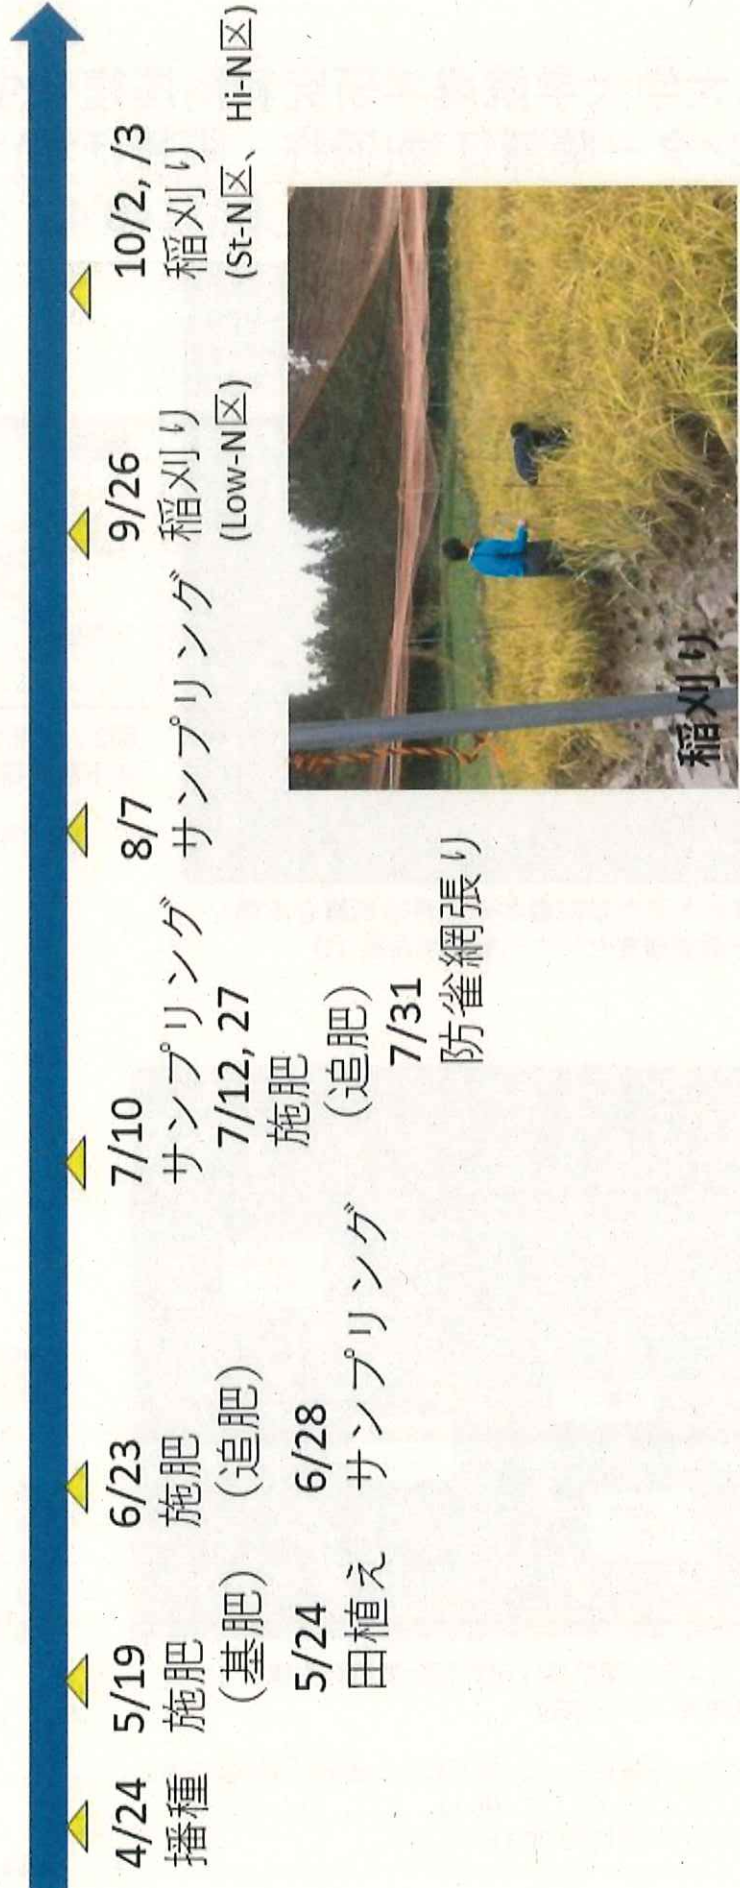 4/24
播種
5/19
施肥
（基肥）
5/24
田植え
6/23
施肥
（追肥）
6/28
サンプリング
7/10
サンプリング
7/12, 27
施肥
（追肥）
7/31
防雀網張り
8/7
サンプリング
9/26
稲刈り
(Low-N区)
10/2, /3
稲刈り
(St-N区、Hi-N区)
稲刈り